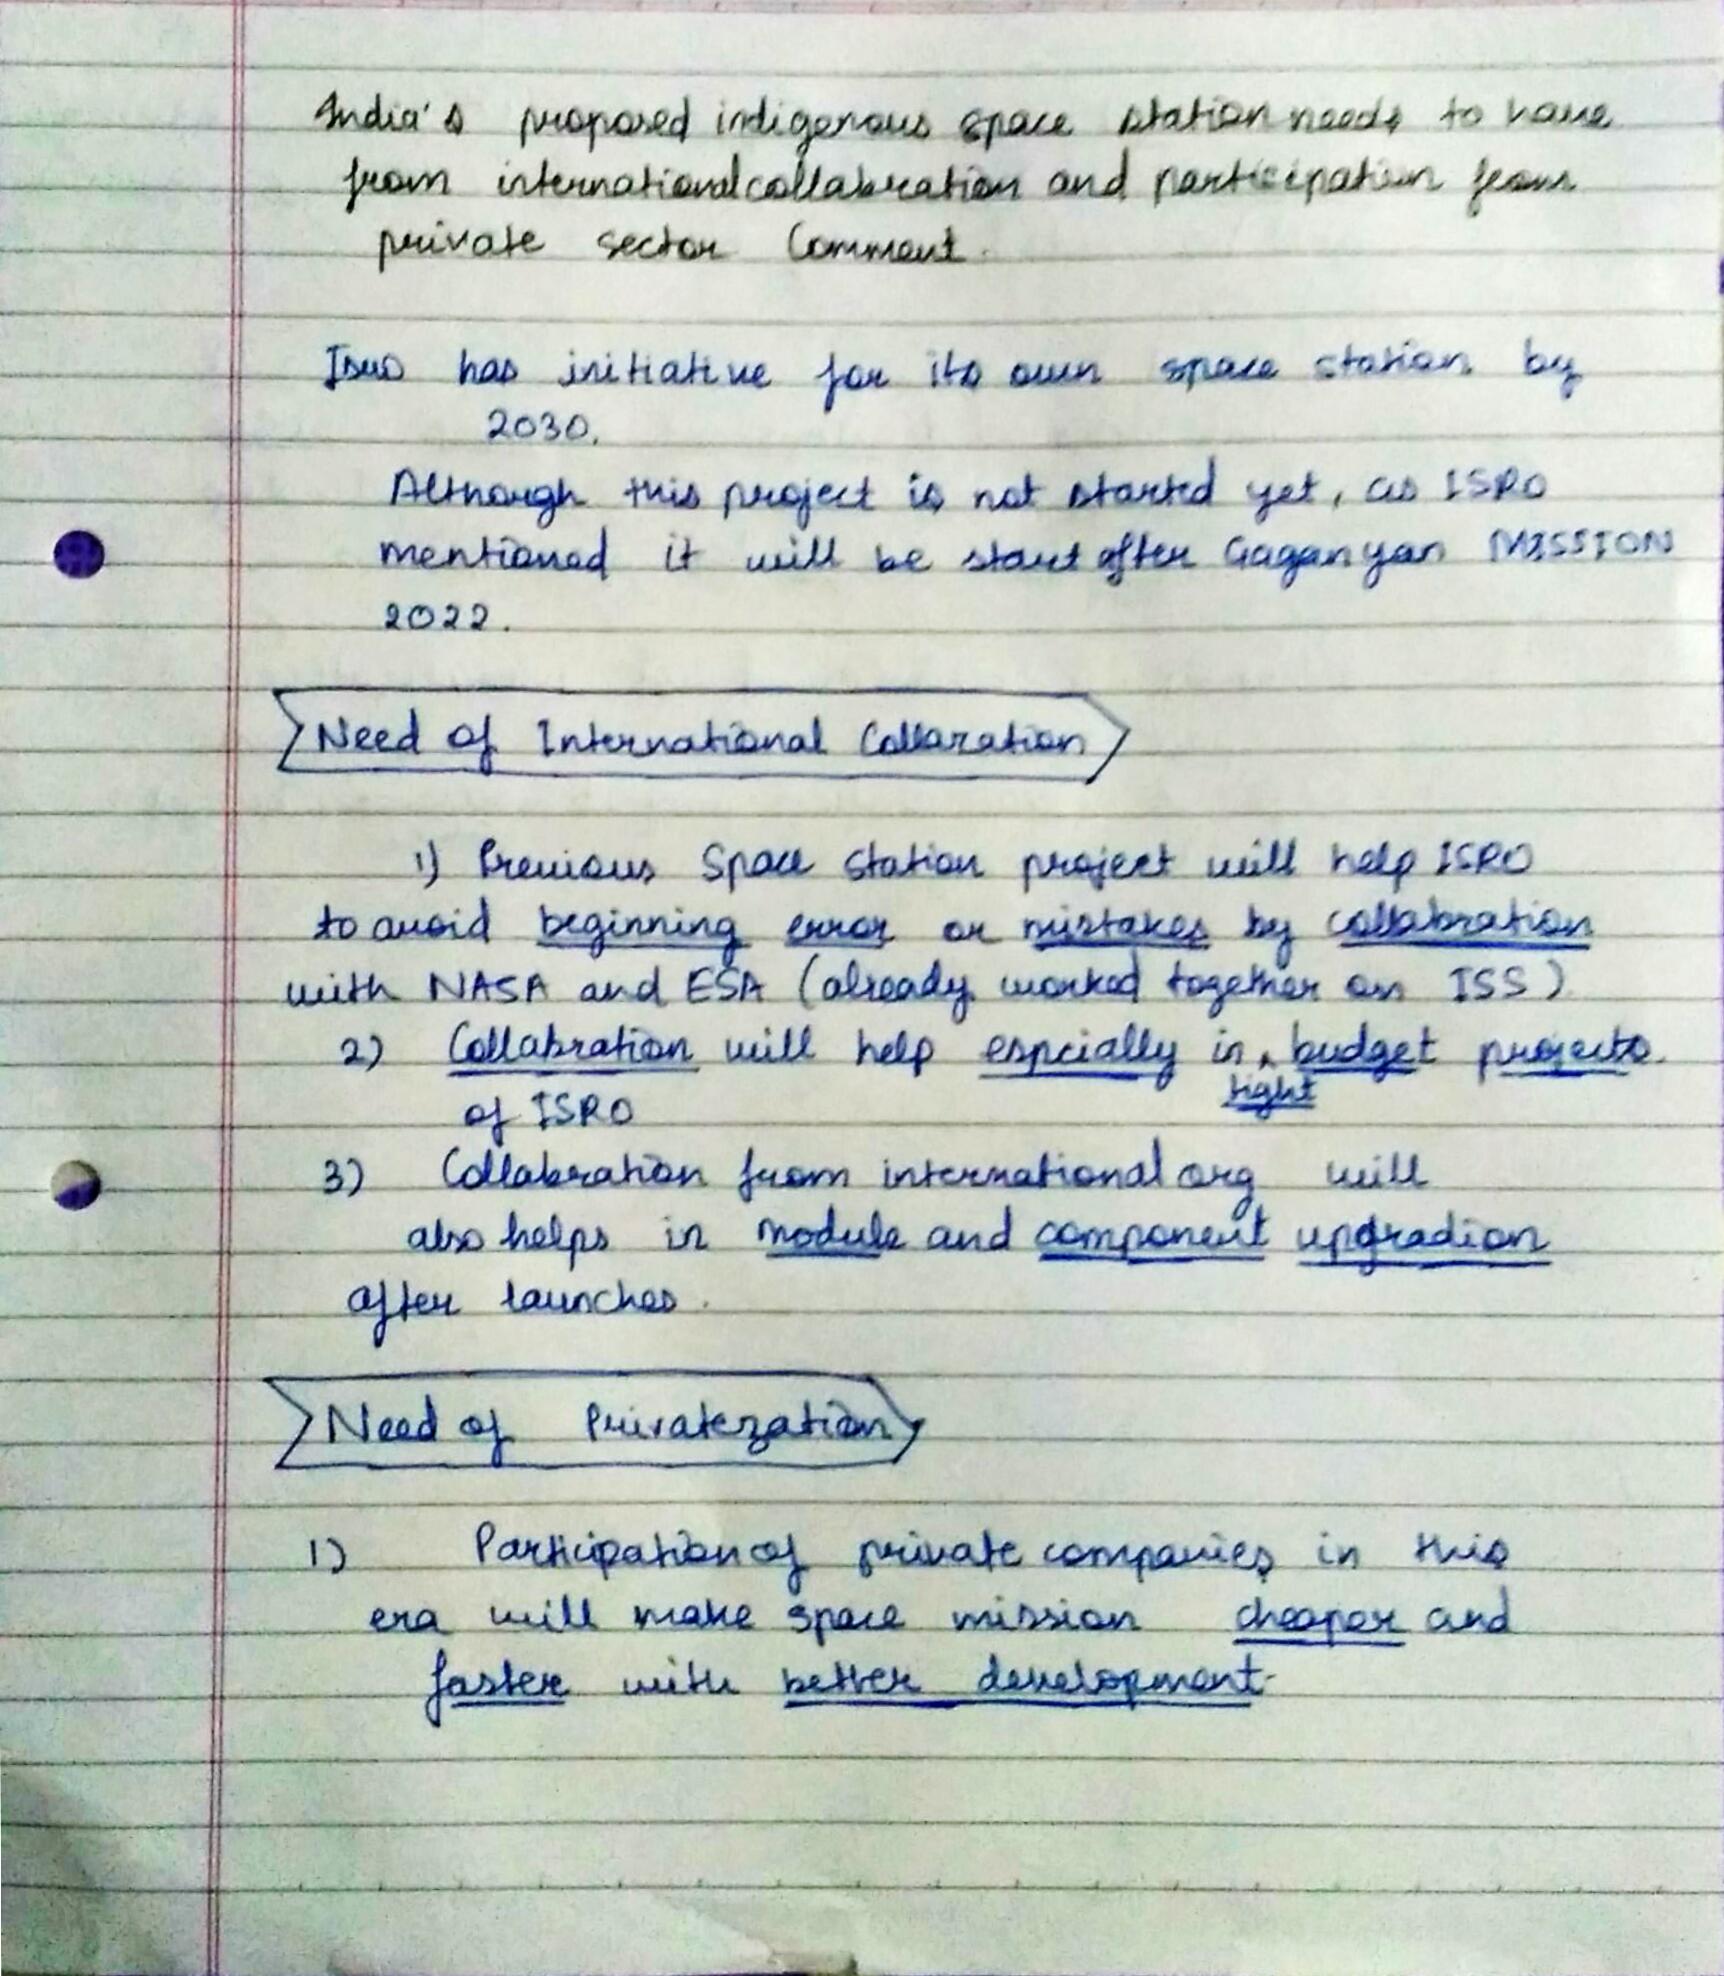 India's proposed indigenous space station needs to have
from international collabration and participation from
private sector Comment.
Isro has initiative for its own space station by
2030.
Although this project is not started yet, as ISRO
mentioned it will be start after Gaganyan MISSION
2022.
Need of International Collaration
1) Previous Space Station project will help ISRO
to avoid beginning error or mistakes by collabration
with NASA and ESA (already worked together on ISS)
2) Collabration will help espcially in tight budget projects
of ISRO
3) Collabration from international org will
also helps in module and component upgradion
after launches.
Need of Privatezation
1) Participation of private companies in this
era will make space mission cheaper and
faster with better development.